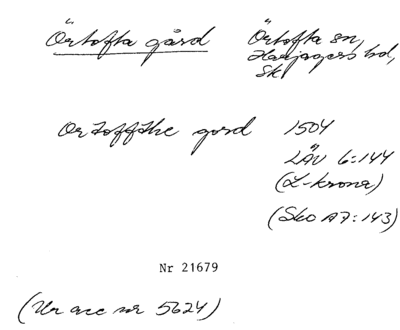 Örtofta gård Örtofta sn,
Harjagers hd,
Sk
Ortoffthe gord 1504
LÄU 6:144
(L-krona)
(Sko A7:143)
Nr 21679
(Ur acc nr 5624)